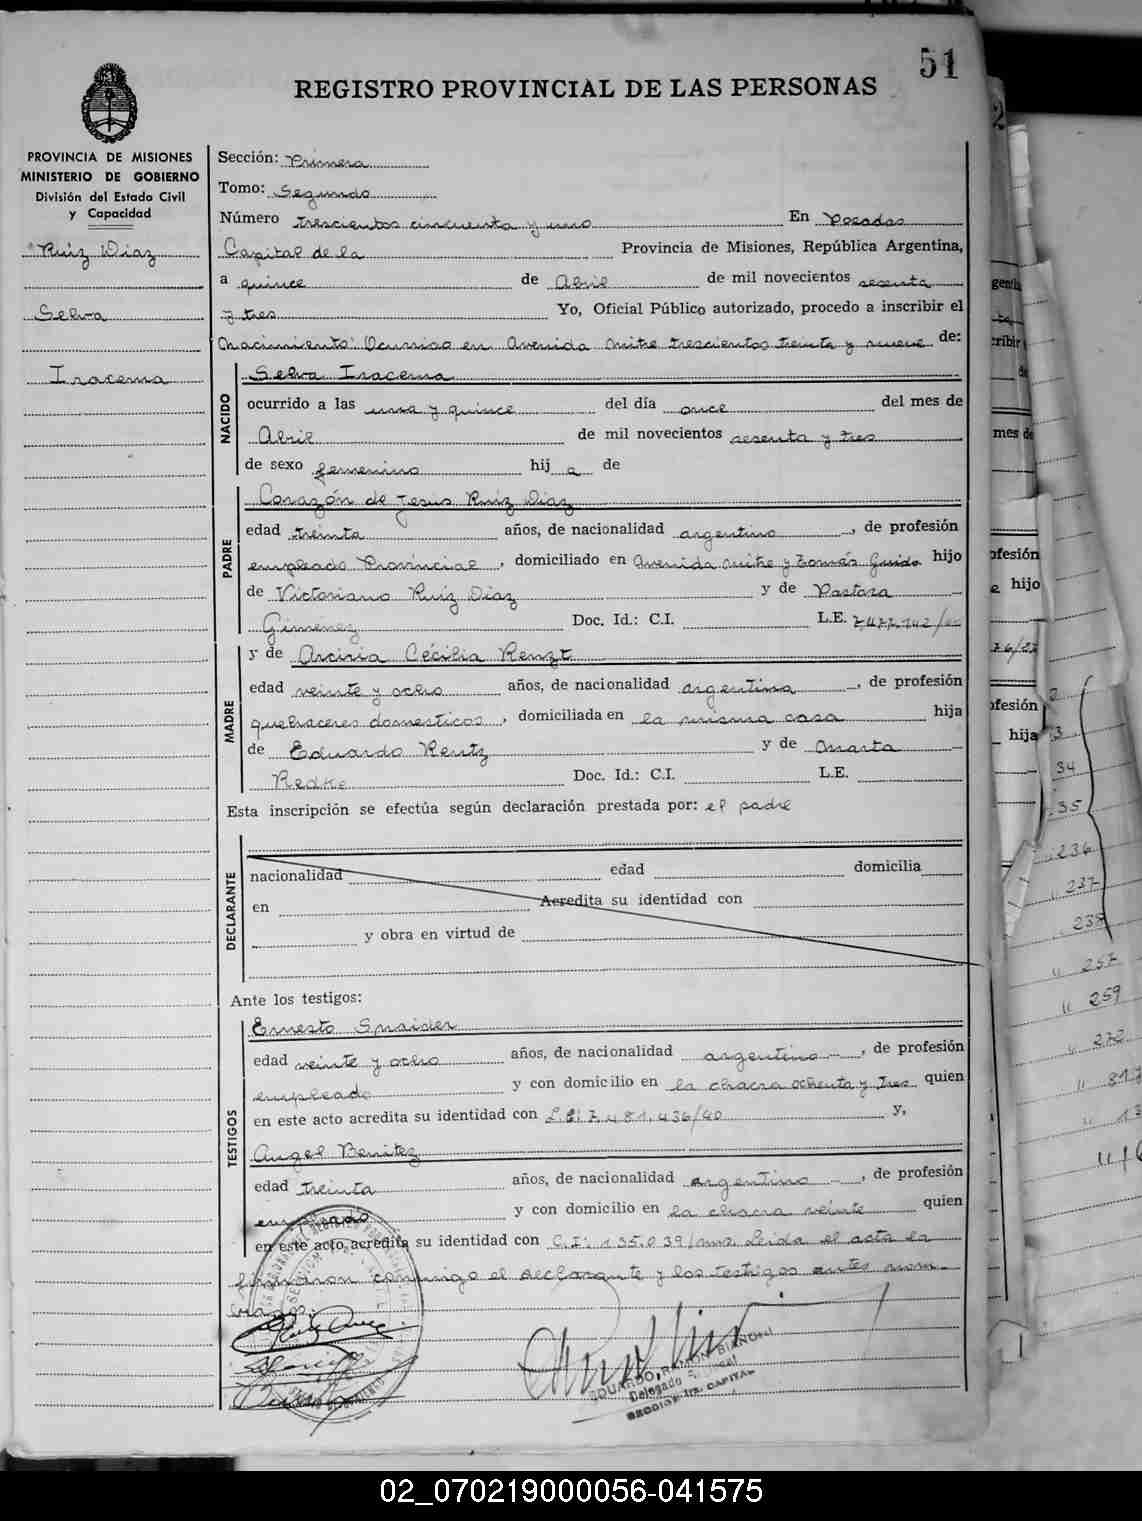 51
REGISTRO PROVINCIAL DE LAS PERSONAS
PROVINCIA DE MISIONES
MINISTERIO DE GOBIERNO
División del Estado Civil
y Capacidad
Ruiz Diaz
Selva
Iracema
Sección: Primera
Tomo: Segundo
Número trescientos cincuenta y uno En Posadas
Capital de la Provincia de Misiones, República Argentina,
a quince de Abril de mil novecientos sesenta
y tres Yo, Oficial Público autorizado, procedo a inscribir el
Nacimiento: Ocurrido en Avenida Mitre trescientos treinta y nueve de:
NACIDO
Selva Iracema
ocurrido a las una y quince del día once del mes de
Abril de mil novecientos sesenta y tres
de sexo femenino hij a de
PADRE
Corazón de Jesus Ruiz Diaz
edad treinta años, de nacionalidad argentino, de profesión
empleado Provincial, domiciliado en Avenida Mitre y Tomás Guido hijo
de Victoriano Ruiz Diaz y de Pastora
Gimenez Doc. Id.: C.I. L.E. 7.477.142/
MADRE
y de Arciria Cécilia Renzt
edad veinte y ocho años, de nacionalidad argentina, de profesión
quehaceres domesticos, domiciliada en la misma casa hija
de Eduardo Rentz y de Marta
Redke Doc. Id.: C.I. L.E.
Esta inscripción se efectúa según declaración prestada por: el padre
DECLARANTE
nacionalidad edad domicilia
en Acredita su identidad con
y obra en virtud de
Ante los testigos:
TESTIGOS
Ernesto Snaider
edad veinte y ocho años, de nacionalidad argentino, de profesión
empleado y con domicilio en la chacra ochenta y tres quien
en este acto acredita su identidad con L.E: 7.481.436/40 y,
Angel Benitez
edad treinta años, de nacionalidad argentino, de profesión
empleado y con domicilio en la chacra veinte quien
en este acto acredita su identidad con C.I: 135.039/mns. Leida el acta la
firmaron conmigo el declarante y los testigos antes nom-
brados:
EDUARDO RAMON BIANCHI
Delegado
SECCION 1ra. CAPITAL
mes de
ofesión
hijo
ofesión
hija
34
35
236
237
238
257
259
272
817
02_070219000056-041575